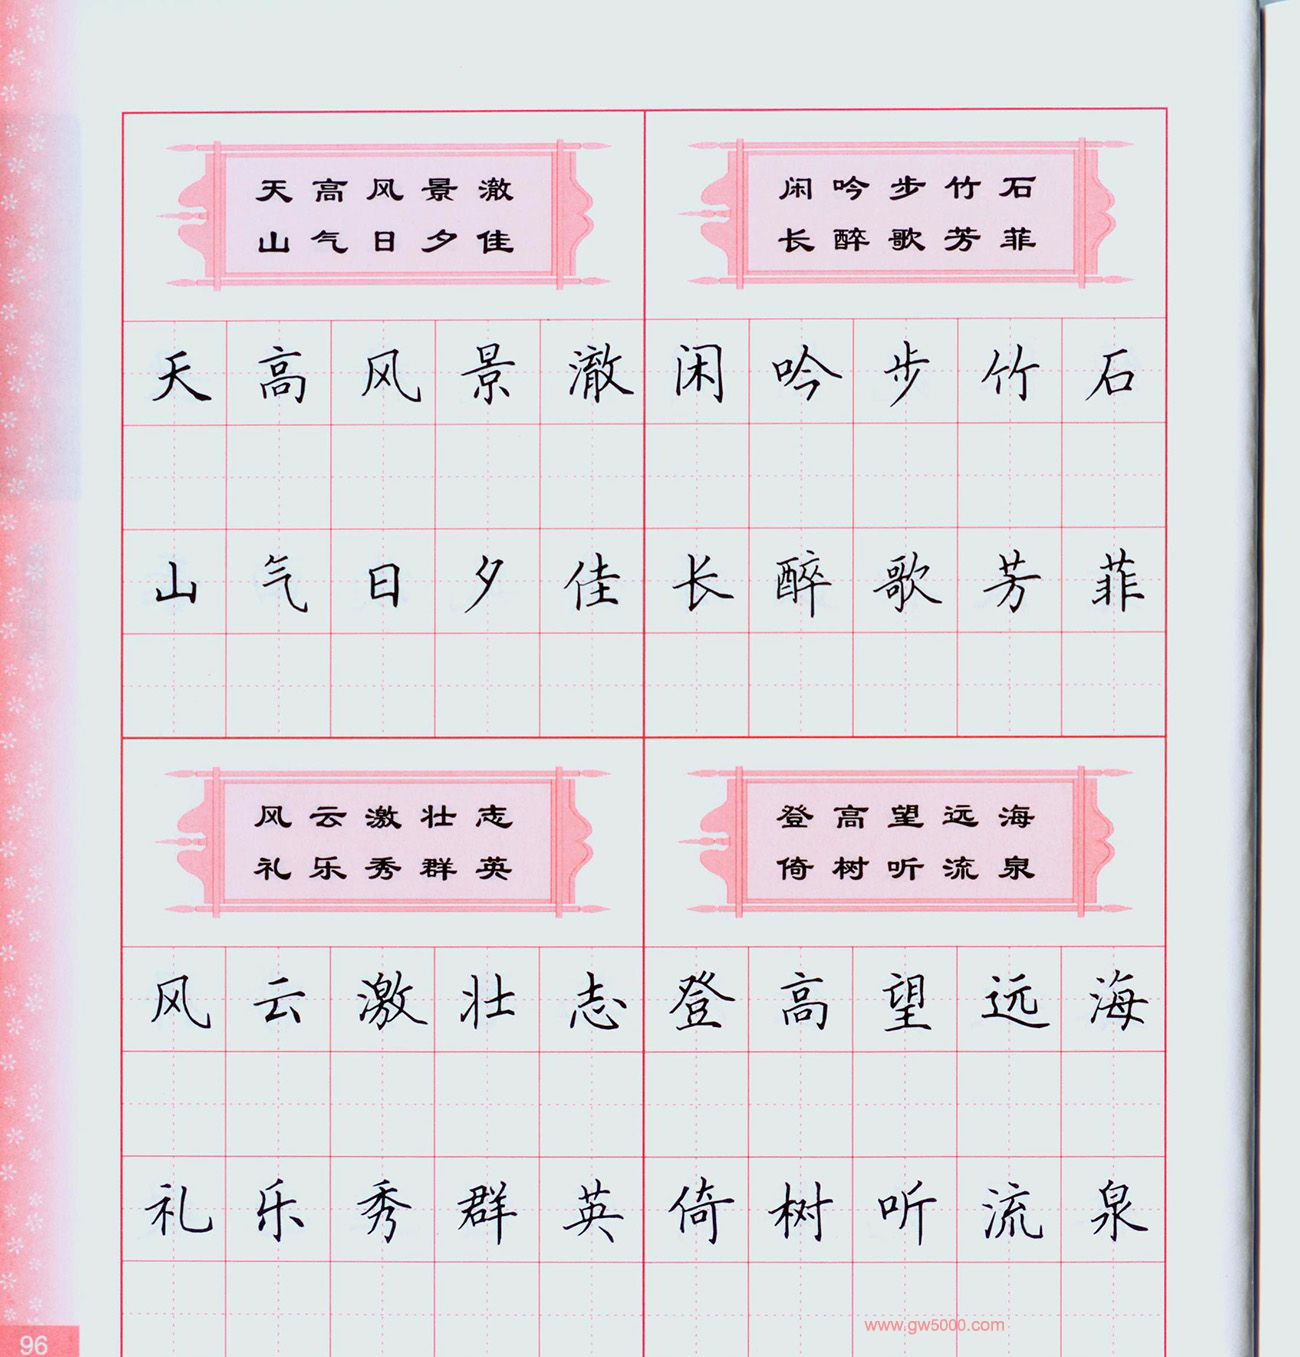 天高风景澈
山气日夕佳
闲吟步竹石
长醉歌芳菲
天高风景澈
闲吟步竹石
山气日夕佳
长醉歌芳菲
风云激壮志
礼乐秀群英
登高望远海
倚树听流泉
风云激壮志
登高望远海
礼乐秀群英
倚树听流泉
www.gw5000.com
96